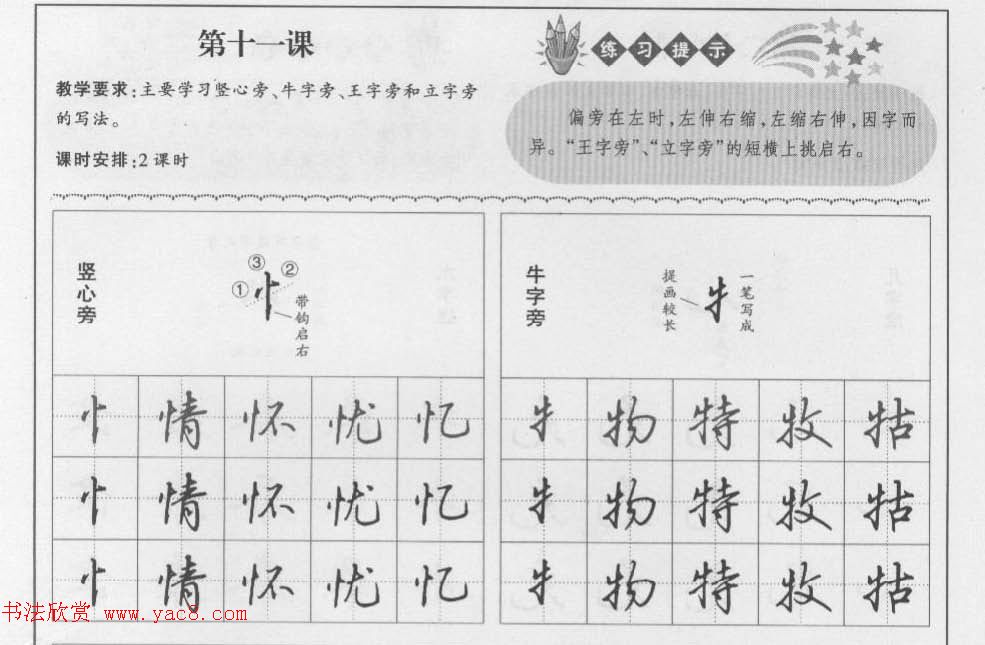 第十一课
教学要求:主要学习竖心旁、牛字旁、王字旁和立字旁
的写法。
课时安排:2课时
练习提示
偏旁在左时,左伸右缩,左缩右伸,因字而
异。“王字旁”、“立字旁”的短横上挑启右。
竖心旁
① ③ ②
忄
带钩启右
牛字旁
提画较长
牜
一笔写成
忄 情 怀 忧 忆
忄 情 怀 忧 忆
忄 情 怀 忧 忆
牜 物 特 牧 牯
牜 物 特 牧 牯
牜 物 特 牧 牯
书法欣赏 www.yac8.com